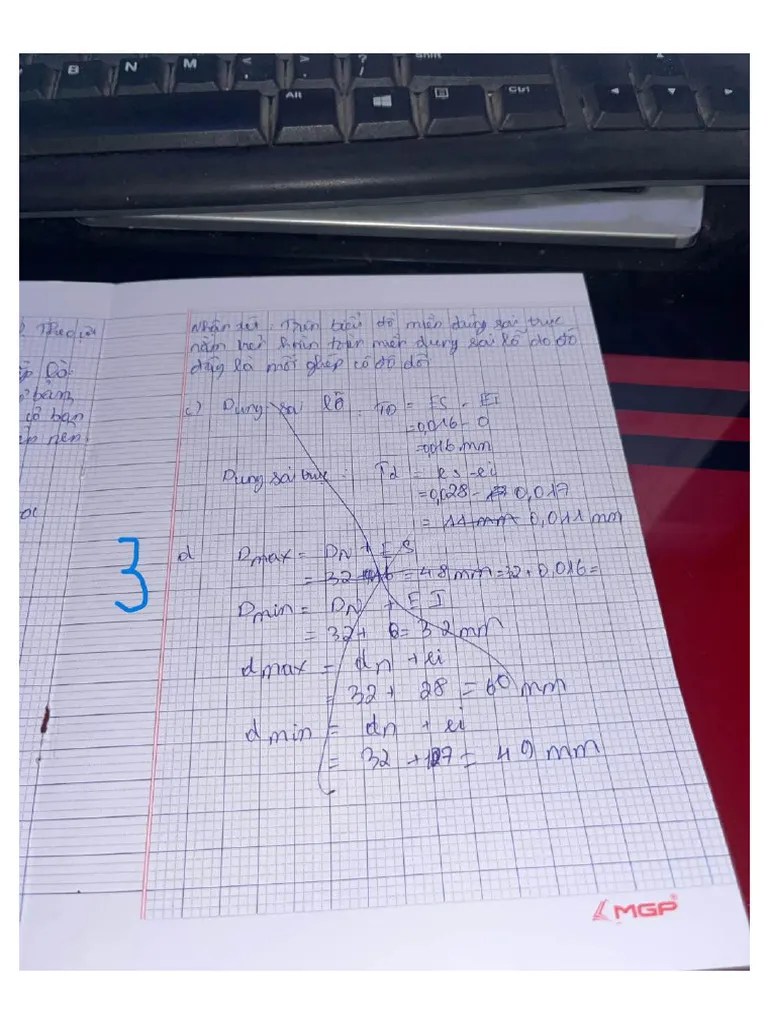 B N M < , > . ? / Shift
Alt Ctrl
Nhận xét: Trên biểu đồ miền dung sai trục
nằm hoàn toàn miền dung sai lỗ do đó
đây là mối ghép có độ dôi
c) Dung sai lỗ: TD = ES - Ei
= 0,016 - 0
= 0,016 mm
Dung sai trục: Td = es - ei
= 0,028 - 0,017
= 11 mm 0,011 mm
3
d Dmax = DN + ES
= 32 + 16 = 48 mm = 32 + 0,016 =
Dmin = DN + EI
= 32 + 0 = 32 mm
dmax = dn + ei
= 32 + 28 = 60 mm
dmin = dn + ei
= 32 + 17 = 49 mm
MGP